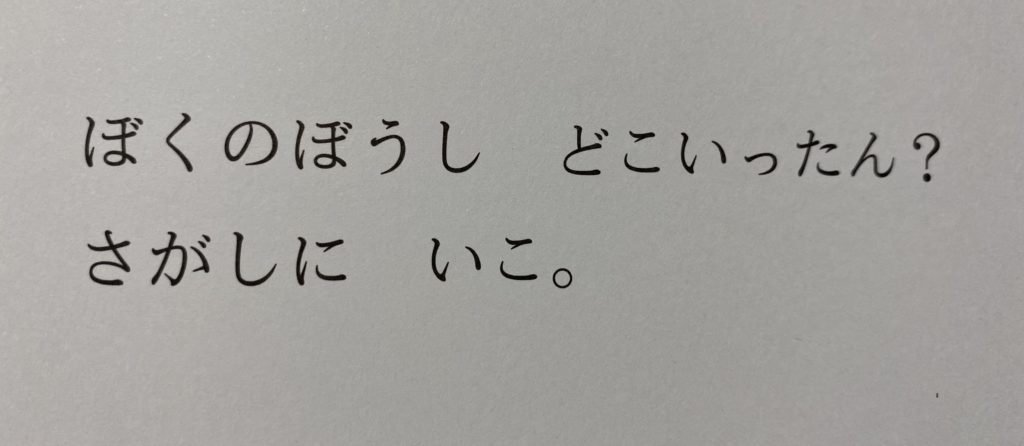 ぼくのぼうし　どこいったん？
さがしに　いこ。